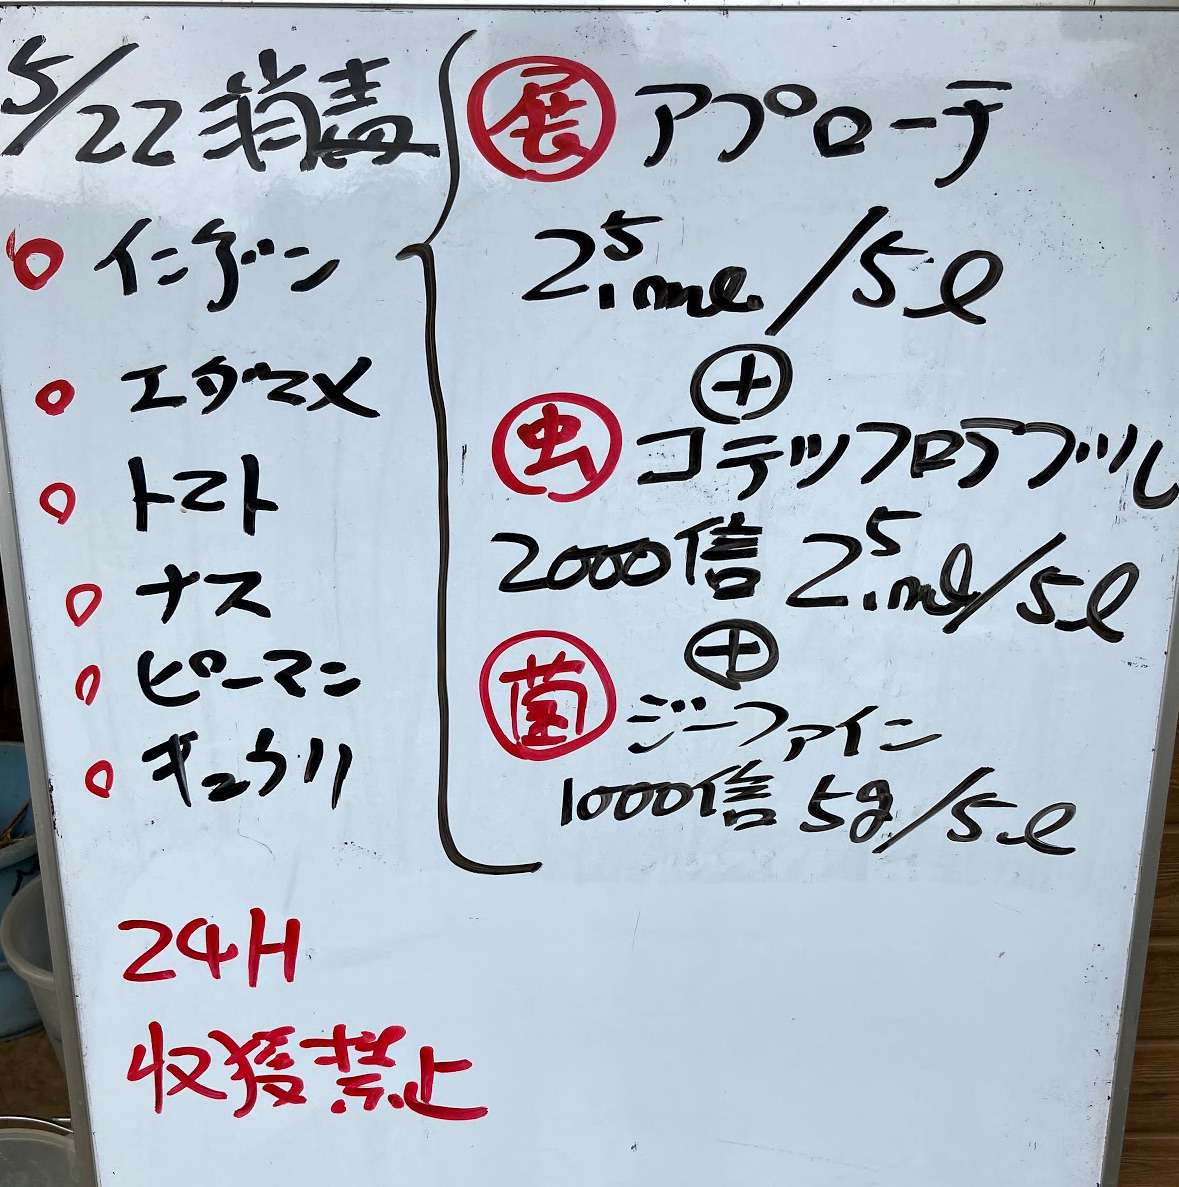 5/22 消毒
インゲン
エダマメ
トマト
ナス
ピーマン
キュウリ
展 アプローチ
2.5ml/5l
+
虫 コテツフロアブル
2000倍 2.5ml/5l
+
菌 ジーファイン
1000倍 5g/5l
24H
収穫禁止